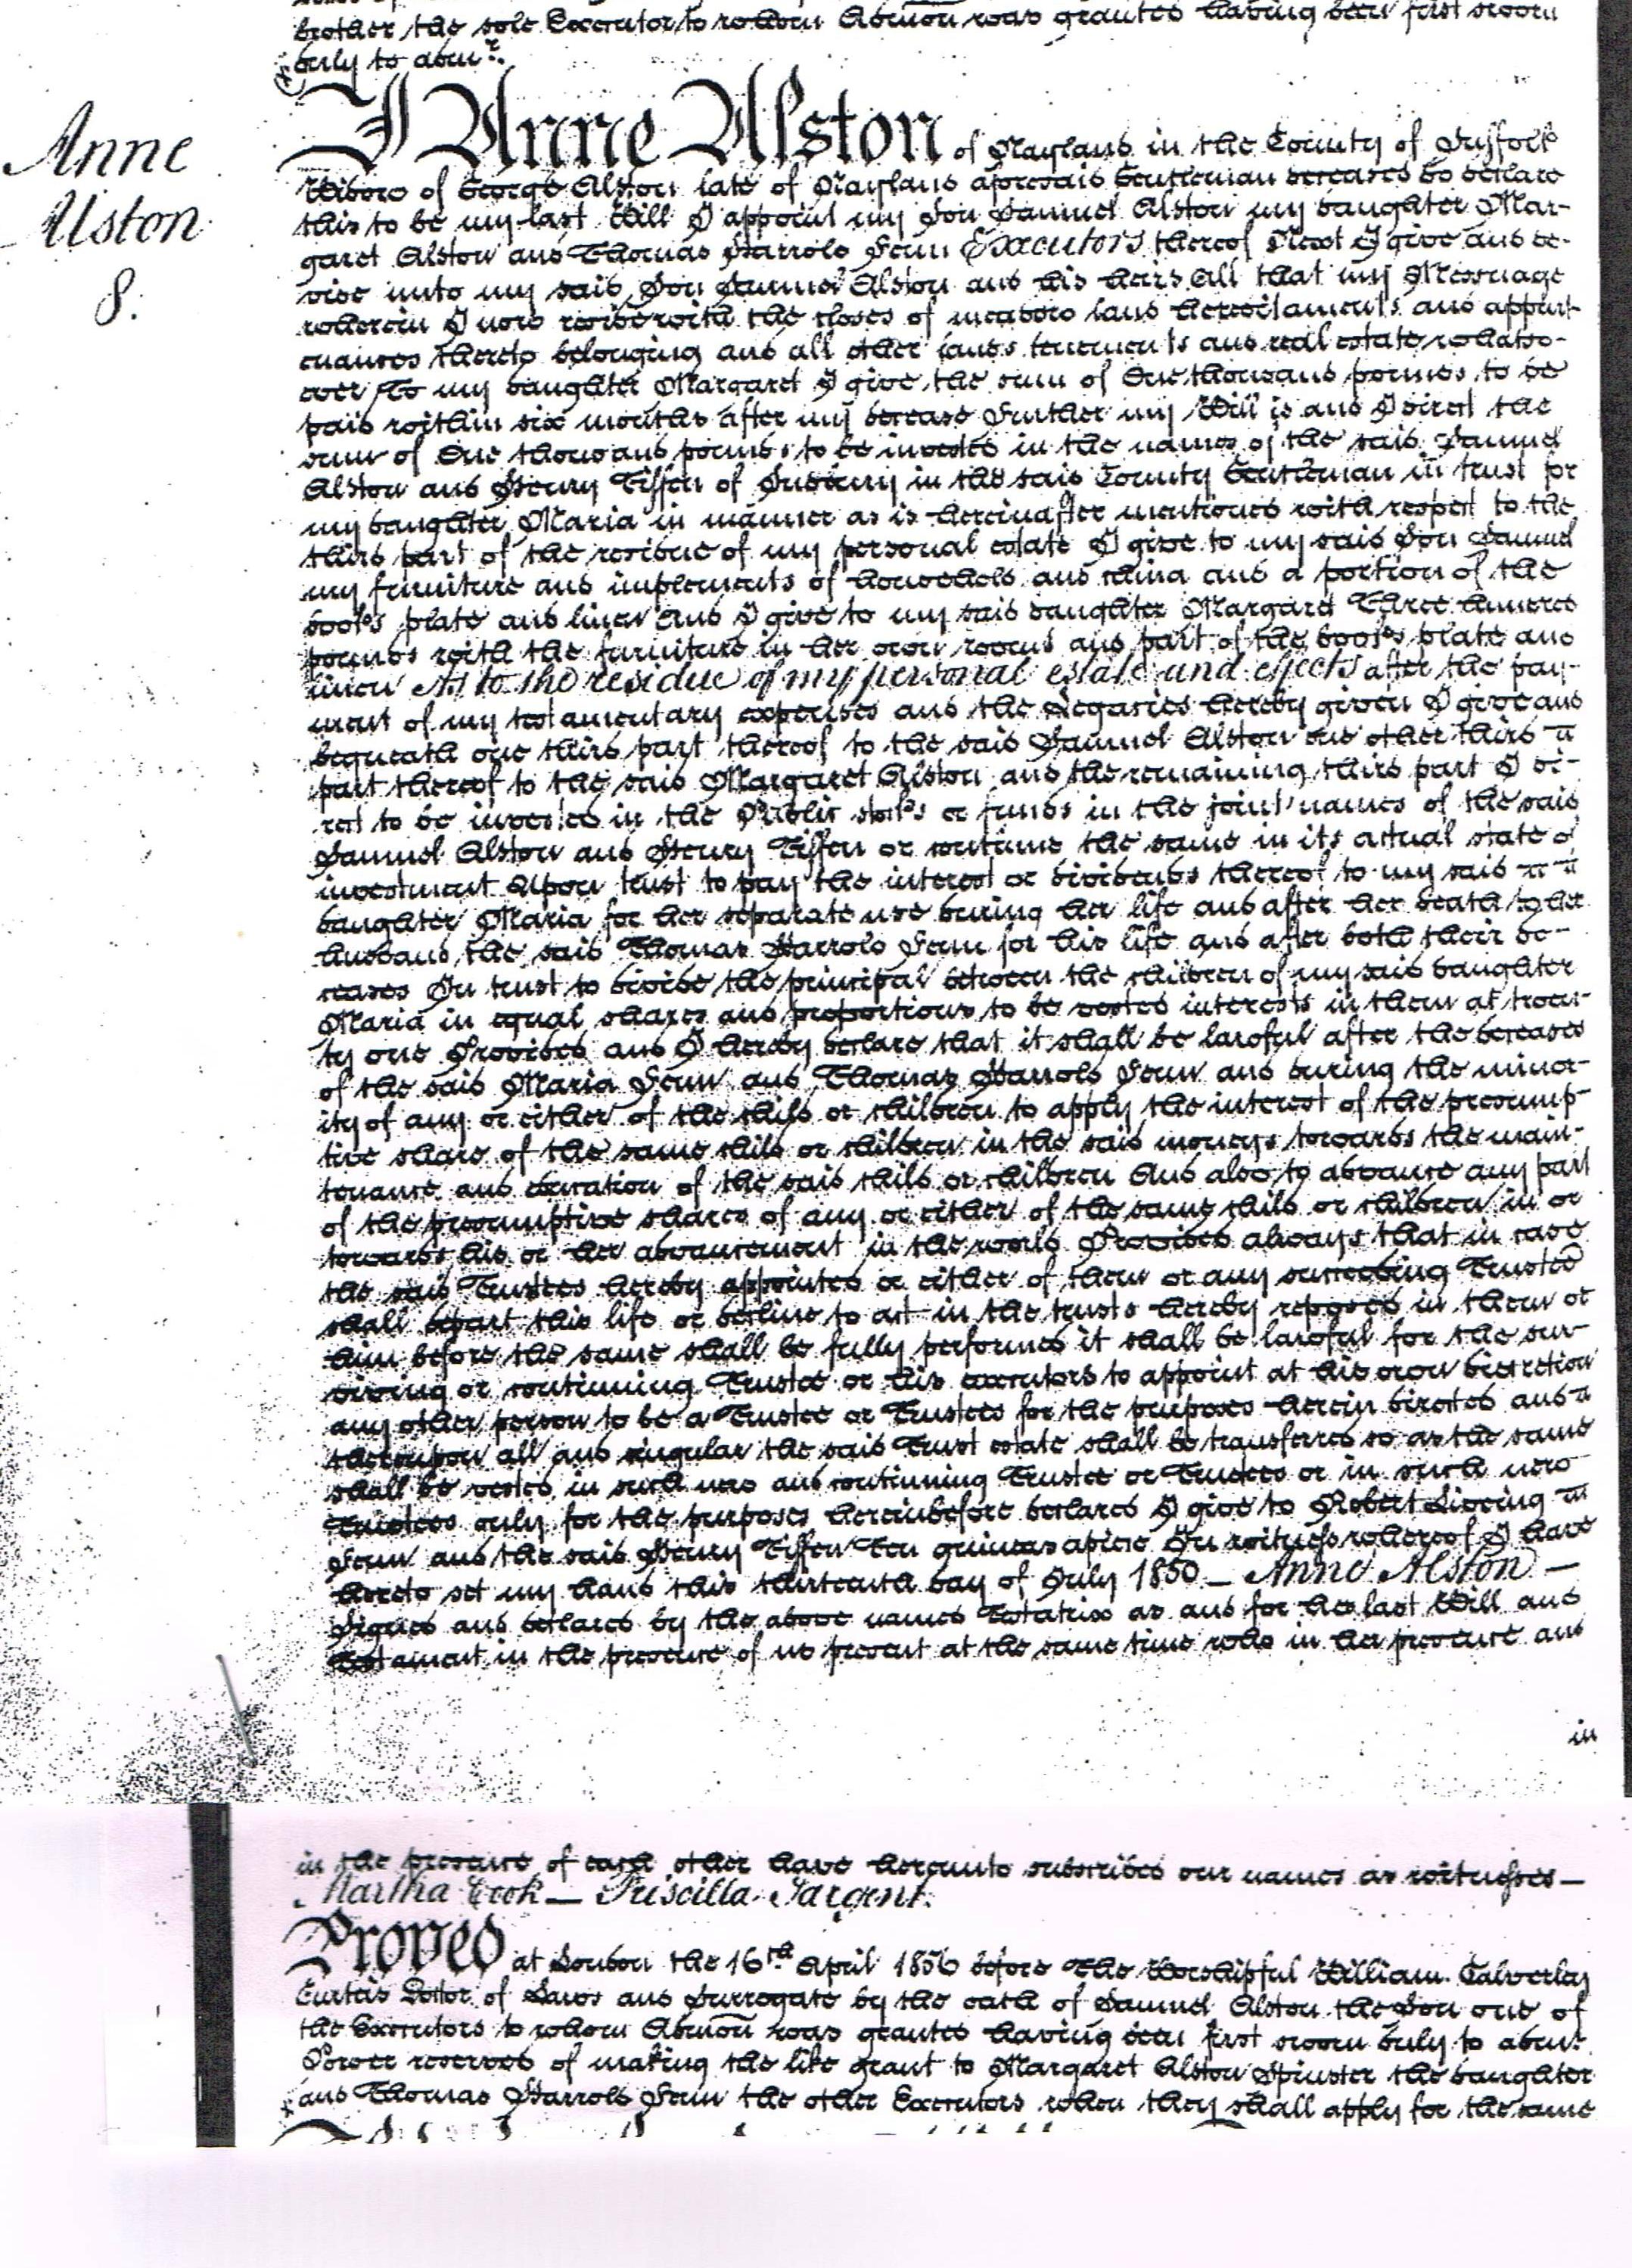 brother the sole Executor to whom Admon was granted having been first sworn
duly to admr.
Anne
Alston
8.
I Anne Alston of Nayland in the County of Suffolk
Widow of George Alston late of Nayland aforesaid Gentleman deceased do declare
this to be my last Will I appoint my Son Samuel Alston my daughter Mar-
garet Alston and Thomas Harrold Fenn Executors thereof First I give and de-
vise unto my said Son Samuel Alston and his heirs All that my Messuage
wherein I now reside with the closes of meadow land hereditaments and appurt-
enances thereto belonging and all other lands tenements and real estate whatso-
ever To my daughter Margaret I give the sum of One thousand pounds to be
paid within six months after my decease Further my Will is and I direct the
sum of One thousand pounds to be invested in the names of the said Samuel
Alston and Henry Tiffen of Sudbury in the said County Gentleman in trust for
my daughter Maria in manner as is hereinafter mentioned with respect to the
third part of the residue of my personal estate I give to my said Son Samuel
my furniture and implements of household and china and a portion of the
books plate and linen And I give to my said daughter Margaret Three hundred
pounds with the furniture in her own rooms and part of the books plate and
linen As to the residue of my personal estate and effects after the pay-
ment of my testamentary expenses and the Legacies hereby given I give and
bequeath one third part thereof to the said Samuel Alston one other third
part thereof to the said Margaret Alston and the remaining third part I di-
rect to be invested in the Public stocks or funds in the joint names of the said
Samuel Alston and Henry Tiffen or continue the same in its actual state of
investment Upon trust to pay the interest or dividends thereof to my said
daughter Maria for her separate use during her life and after her death to her
husband the said Thomas Harrold Fenn for his life and after both their de-
ceases In trust to divide the principal between the children of my said daughter
Maria in equal shares and proportions to be vested interests in them at twen-
ty one Provided and I hereby declare that it shall be lawful after the deceases
of the said Maria Fenn and Thomas Harrold Fenn and during the minor-
ity of any or either of the child or children to apply the interest of the presump-
tive share of the same child or children in the said moneys towards the main-
tenance and education of the said child or children And also to advance any part
of the presumptive shares of any or either of the same child or children in or
towards his or her advancement in the world Provided always that in case
the said Trustees hereby appointed or either of them or any succeeding Trustee
shall depart this life or decline to act in the trusts hereby reposed in them or
him before the same shall be fully performed it shall be lawful for the sur-
viving or continuing Trustee or his executors to appoint at his own discretion
any other person to be a Trustee or Trustees for the purposes herein directed and
thereupon all and singular the said Trust estate shall be transferred so as the same
shall be vested in such new and continuing Trustee or Trustees or in such new
Trustees only for the purposes hereinbefore declared I give to Robert Living
Fenn and the said Henry Tiffen Ten guineas apiece In witness whereof I have
hereto set my hand this thirteenth day of July 1850 — Anne Alston —
Signed and declared by the above named Testatrix as and for her last Will and
Testament in the presence of us present at the same time who in her presence and
in
in the presence of each other have hereunto subscribed our names as witnesses —
Martha Cook — Priscilla Sargent.
Proved at London the 16th April 1856 before The Worshipful William Calverley
Curteis Doctor of Laws and Surrogate by the oath of Samuel Alston the Son one of
the Executors to whom Admon was granted having been first sworn duly to admr.
Power reserved of making the like grant to Margaret Alston Spinster the daughter
and Thomas Harrold Fenn the other Executors when they shall apply for the same